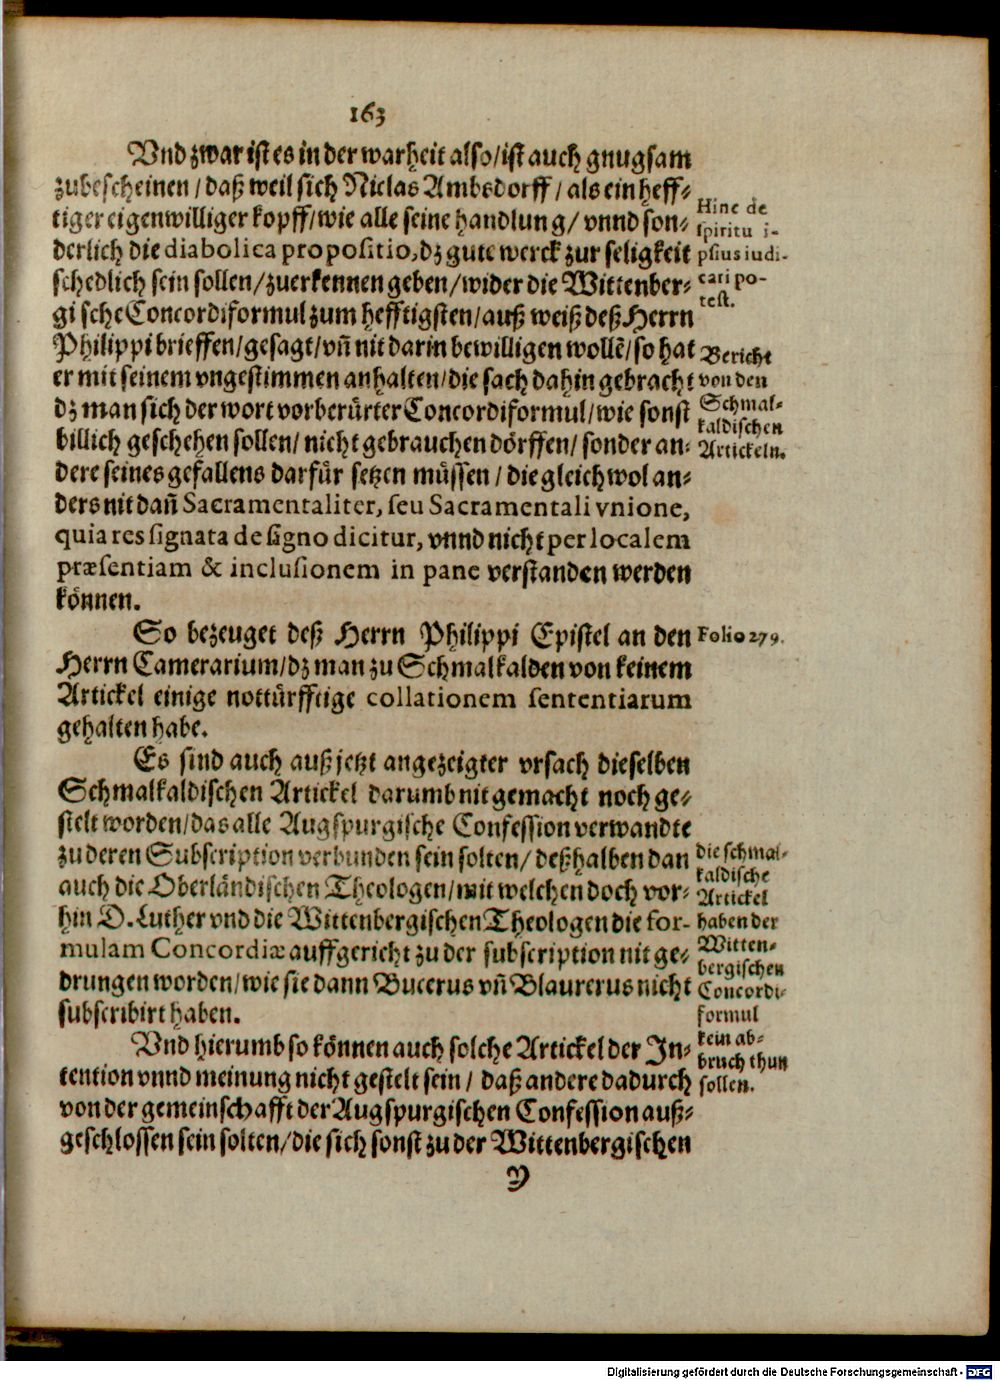 163
Vnd zwar ist es in der warheit also/ist auch gnugsam
zubescheinen/daß weil sich Niclas Ambsdorff/als ein heff-
tiger eigenwilliger kopff/wie alle seine handlung/vnnd son-
derlich die diabolica propositio, dz gute werck zur seligkeit
schedlich sein sollen/zuerkennen geben/wider die Wittenber-
gische Concordiformul zum hefftigsten/auß weiß deß Herrn
Philippi brieffen/gesagt/vñ nit darin bewilligen wollē/so hat
er mit seinem vngestimmen anhalten/die sach dahin gebracht
dz man sich der wort vorberürter Concordiformul/wie sonst
billich geschehen sollen/nicht gebrauchen dörffen/sonder an-
dere seines gefallens darfür setzen müssen/die gleichwol an-
ders nit dañ Sacramentaliter, seu Sacramentali vnione,
quia res signata de signo dicitur, vnnd nicht per localem
præsentiam & inclusionem in pane verstanden werden
können.
Hinc de
spiritu i-
psius iudi-
cari po-
test.
Bericht
von den
Schmal-
kaldischen
Artickeln.
So bezeuget deß Herrn Philippi Epistel an den
Herrn Camerarium/dz man zu Schmalkalden von keinem
Artickel einige nottürfftige collationem sententiarum
gehalten habe.
Folio 279.
Es sind auch auß jetzt angezeigter vrsach dieselben
Schmalkaldischen Artickel darumb nit gemacht noch ge-
stelt worden/das alle Augspurgische Confession verwandte
zu deren Subscription verbunden sein solten/deßhalben dan
auch die Oberländischen Theologen/mit welchen doch vor-
hin D. Luther vnd die Wittenbergischen Theologen die for-
mulam Concordiæ auffgericht zu der subscription nit ge-
drungen worden/wie sie dann Bucerus vñ Blaurerus nicht
subscribirt haben.
die schmal-
kaldische
Artickel
haben der
Witten-
bergischen
Concordi-
formul
kein ab-
bruch thun
sollen.
Vnd hierumb so können auch solche Artickel der In-
tention vnnd meinung nicht gestelt sein/daß andere dadurch
von der gemeinschafft der Augspurgischen Confession auß-
geschlossen sein solten/die sich sonst zu der Wittenbergischen
Y
Digitalisierung gefördert durch die Deutsche Forschungsgemeinschaft - DFG